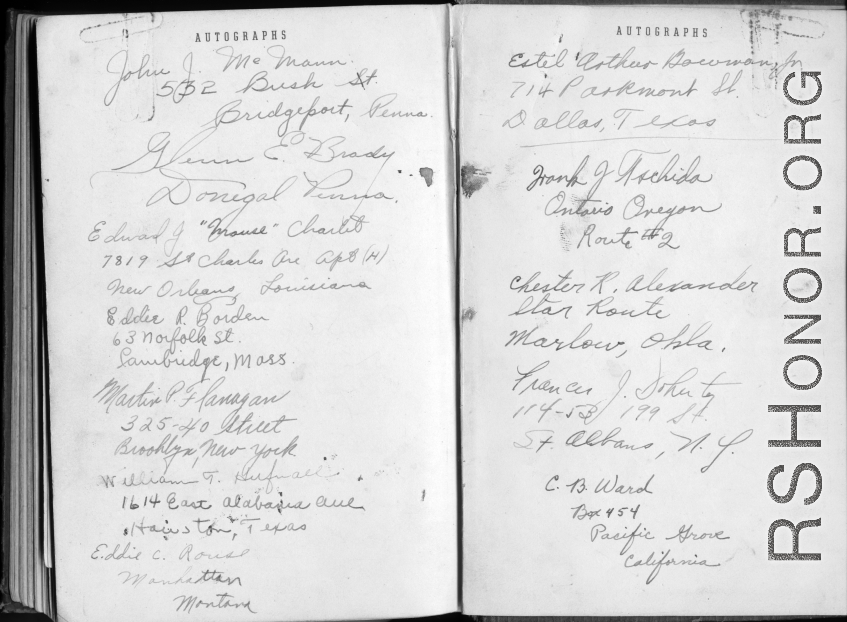 AUTOGRAPHS
John J. McMann.
532 Bush St.
Bridgeport, Penna.
Glenn E. Brady
Donegal Penna.
Edward J "Mouse" Charlet
7819 St Charles Ave Apt (H)
New Orleans, Louisiana
Eddie R. Borden
63 Norfolk St.
Cambridge, Mass.
Martin P. Flanagan
325-40 Street
Brooklyn, New York
William T.
1614 East Alabama Ave
Houston, Texas
Eddie C. Rouse
Manhattan
Montana
AUTOGRAPHS
Estel Arthur Bowman, Jr
714 Parkmont St.
Dallas, Texas
Frank J Tschida
Ontario Oregon
Route #2
Chester R. Alexander
Star Route
Marlow, Okla.
Francis J. Doherty
114-53 199 St.
St. Albans, N. Y.
C. B. Ward
Box 454
Pacific Grove
California
RSHONOR.ORG